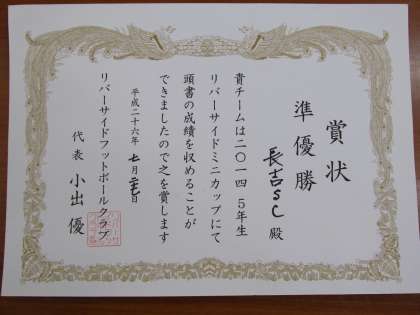 賞状
準優勝
長吉SC 殿
貴チームは二〇一四 5年生
リバーサイドミニカップにて
頭書の成績を収めることが
できましたので之を賞します
平成二十六年 七月二七日
リバーサイドフットボールクラブ
代表 小出 優